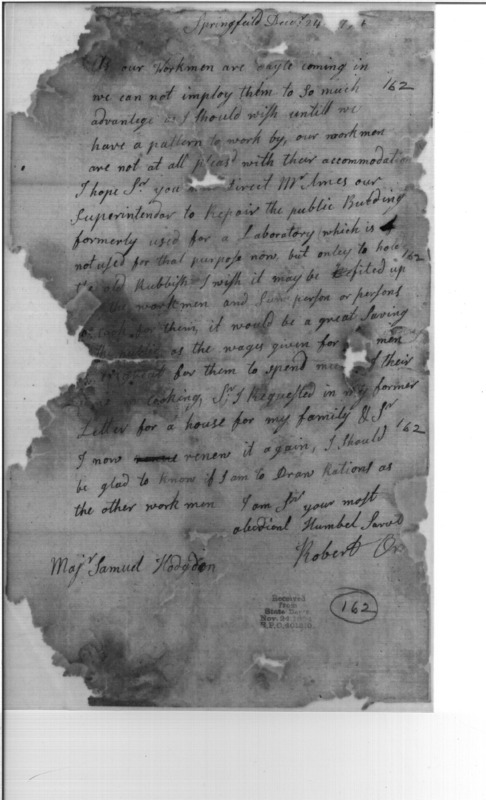 Springfeild Decr. 24
As our Workmen are dayle coming in
we can not imploy them to so much
162
advantege as I should wish untill we
have a pattern to work by, our workmen
are not at all pleasd with their accommodation
I hope Sr. you direct Mr. Ames our
Superintendor to Repair the public Building
formerly used for a Laboratory which is
not used for that purpose now, but onley to hold
162
the old Rubbish I wish it may be fited up
the workmen and Sum person or persons
to Cook for them, it would be a great Saving
as the wages given for men
for them to spend their
Cooking, Sr. I Requested in my former
Letter for a house for my family & Sr
162
I now renew it again, I Should
be glad to know if I am to Draw Rations as
the other work men I am Sr. your most
obedient Humbel Servt
Robert Orr
Majr. Samuel Hodgdon
Received
from
State Dept.
Nov. 21
162